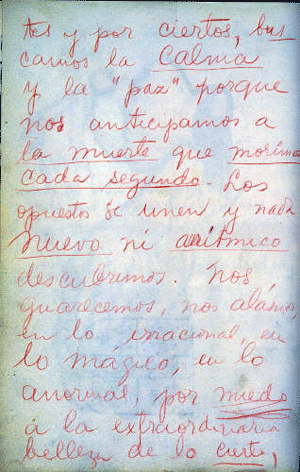 tos y por ciertos, bus
camos la calma
y la "paz" porque
nos anticipamos a
la muerte que morimos
cada segundo. Los
opuestos se unen y nada
nuevo ni arítmico
descubrimos. Nos
guarecemos, nos alamos,
en lo irracional, en
lo mágico, en lo
anormal, por miedo
a la extraordinaria
belleza de lo cierto,